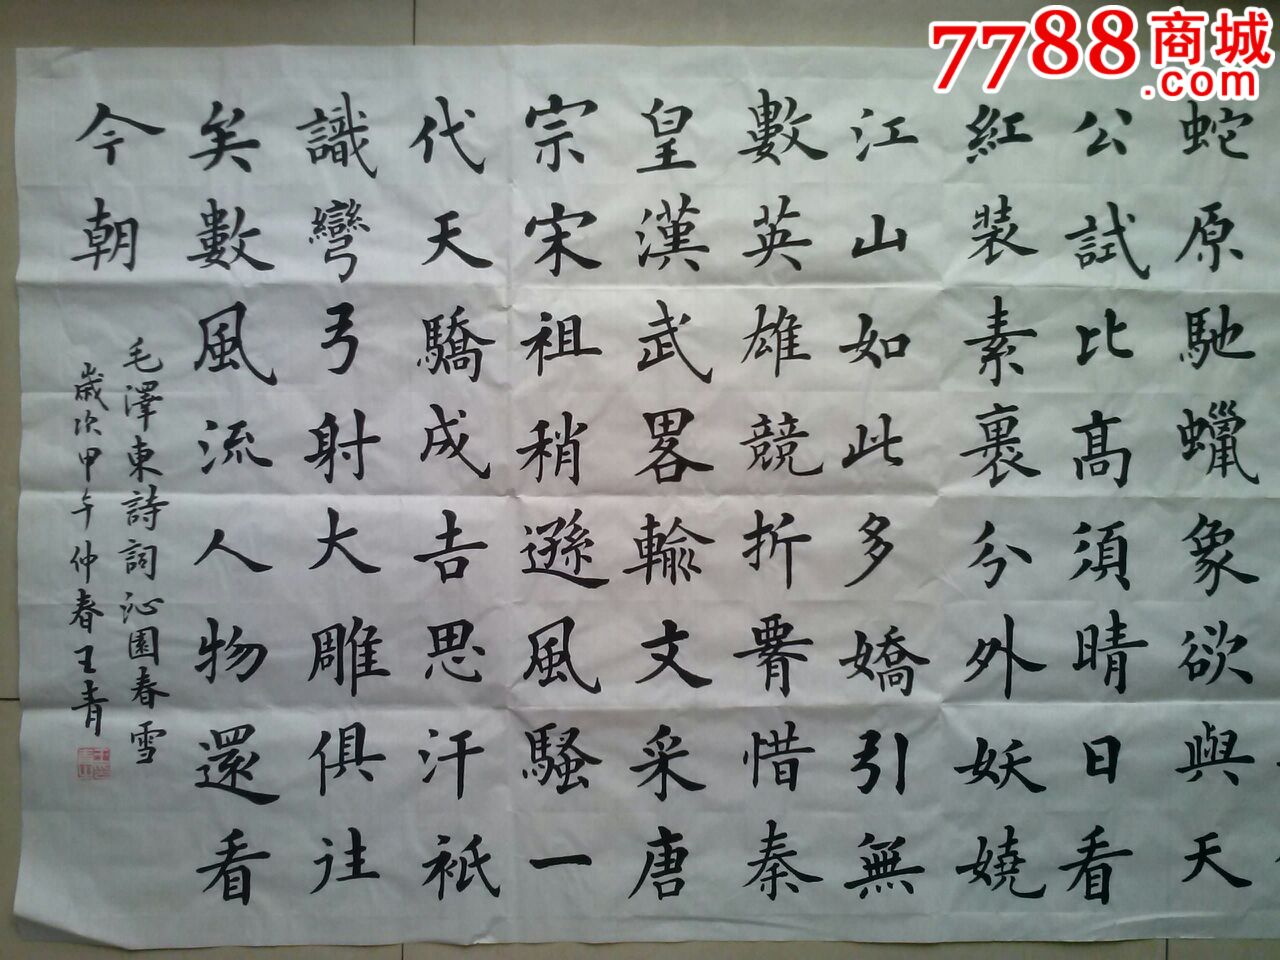 7788商城
.com
蛇原馳蠟象欲與天
公試比高須晴日看
紅裝素裹分外妖嬈
江山如此多嬌引無
數英雄競折腰惜秦
皇漢武畧輸文采唐
宗宋祖稍遜風騷一
代天驕成吉思汗衹
識彎弓射大雕俱往
矣數風流人物還看
今朝
毛澤東詩詞沁園春雪
歲次甲午仲春王青